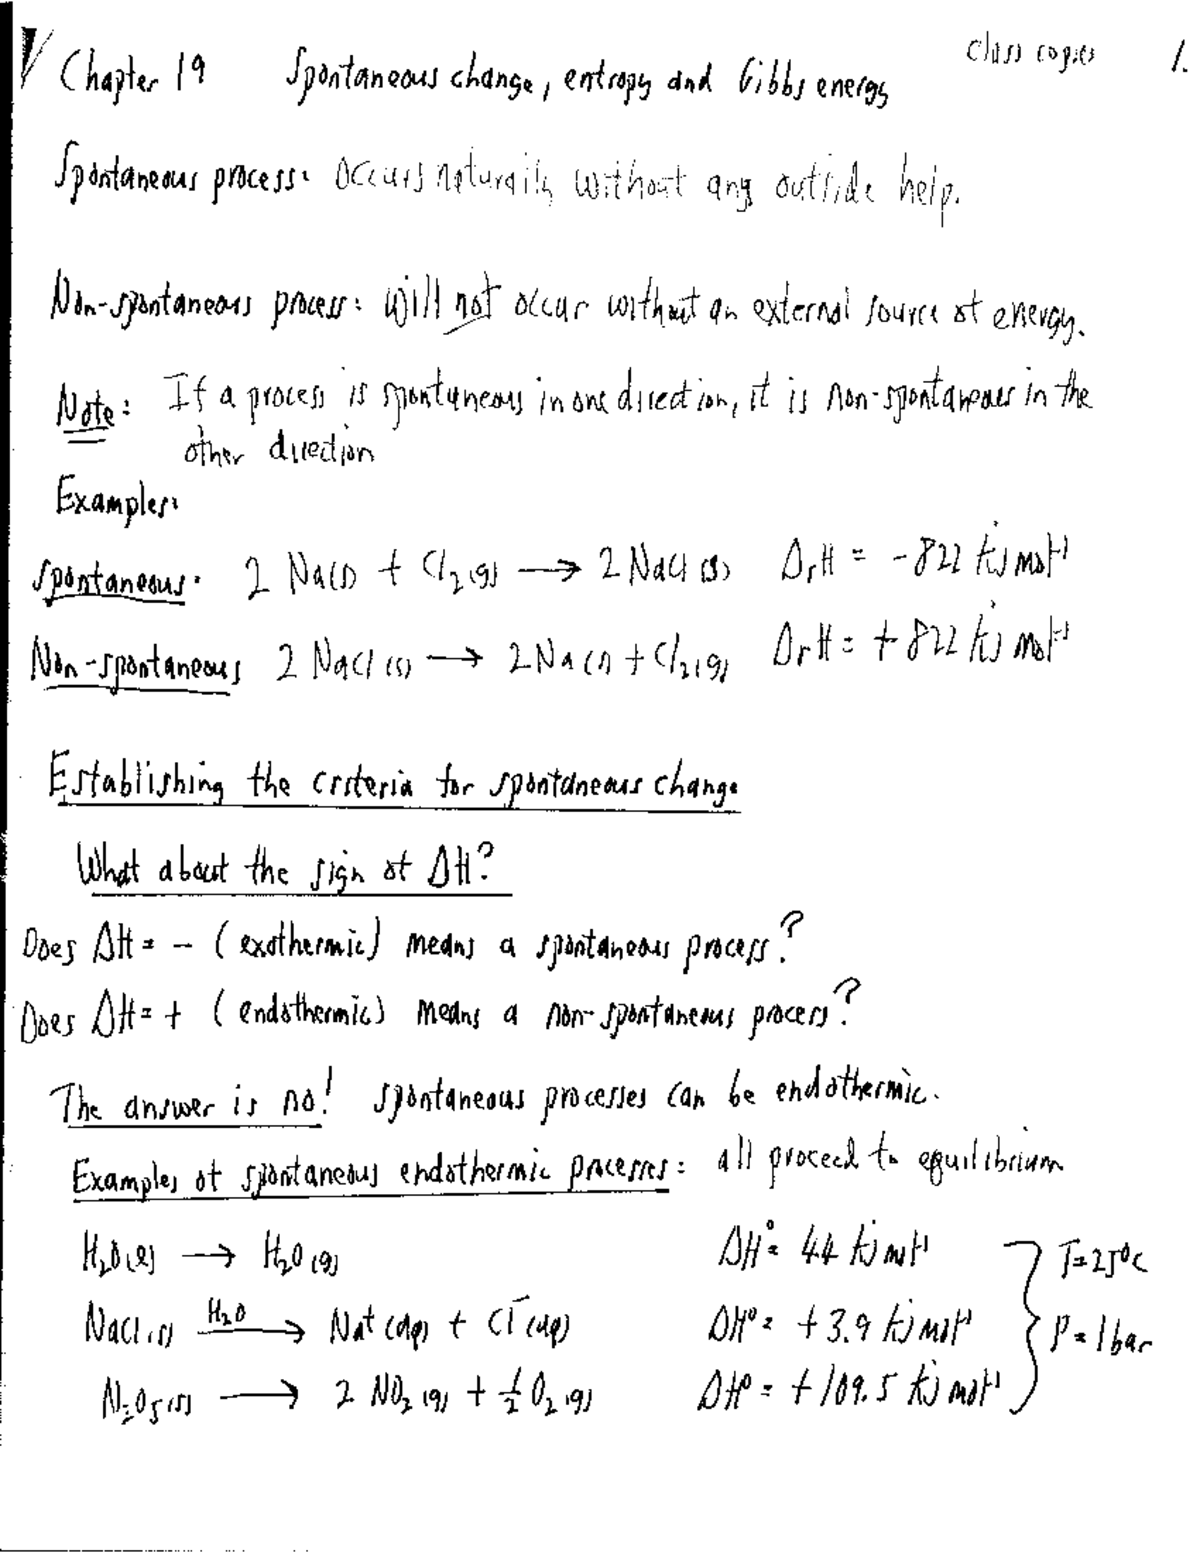 Chapter 19 Spontaneous change, entropy and Gibbs energy
class copies 1.
Spontaneous process: occurs naturally without any outside help.
Non-spontaneous process: will not occur without an external source of energy.
Note: If a process is spontaneous in one direction, it is non-spontaneous in the
other direction
Examples:
spontaneous: 2 Na(s) + Cl₂(g) → 2 NaCl(s) ΔrH = -822 kJ mol⁻¹
Non-spontaneous 2 NaCl(s) → 2Na(s) + Cl₂(g) ΔrH = +822 kJ mol⁻¹
Establishing the criteria for spontaneous change
What about the sign of ΔH?
Does ΔH = - (exothermic) means a spontaneous process?
Does ΔH = + (endothermic) means a non-spontaneous process?
The answer is no! spontaneous processes can be endothermic.
Examples of spontaneous endothermic processes: all proceed to equilibrium
H₂O(l) → H₂O(g) ΔH° = 44 kJ mol⁻¹ T=25°C
NaCl(s) H₂O → Na⁺(aq) + Cl⁻(aq) ΔH° = +3.9 kJ mol⁻¹ P=1bar
N₂O₅(s) → 2 NO₂(g) + ½ O₂(g) ΔH° = +109.5 kJ mol⁻¹